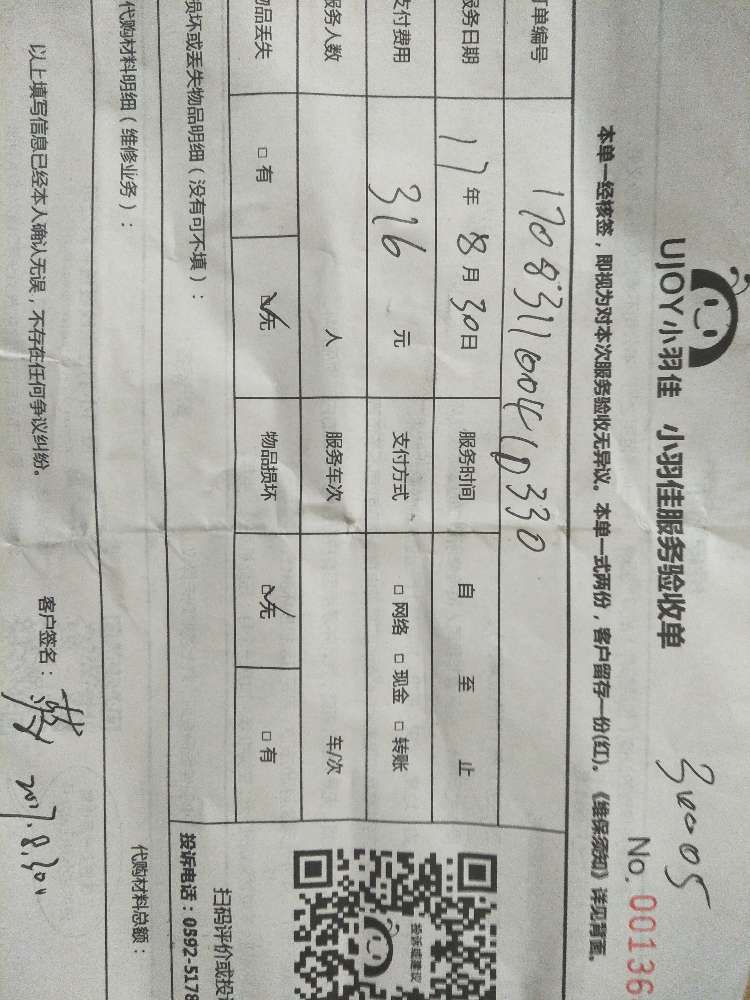 UJOY小羽佳 小羽佳服务验收单
30005
No. 00136
本单一经核签，即视为对本次服务验收无异议。本单一式两份，客户留存一份(红)。《维保须知》详见背面。
订单编号
服务日期 17年8月30日 服务时间 自 至 止
支付费用 316 元 支付方式 □网络 □现金 □转账
服务人数 人 服务车次 车/次
物品丢失 □有 □无 物品损坏 □无 □有
损坏或丢失物品明细（没有可不填）：
投诉或建议
扫码评价或投
投诉电话：0592-5178
代购材料明细（维修业务）：
代购材料总额：
以上填写信息已经本人确认无误，不存在任何争议纠纷。
客户签名： 2017.8.30